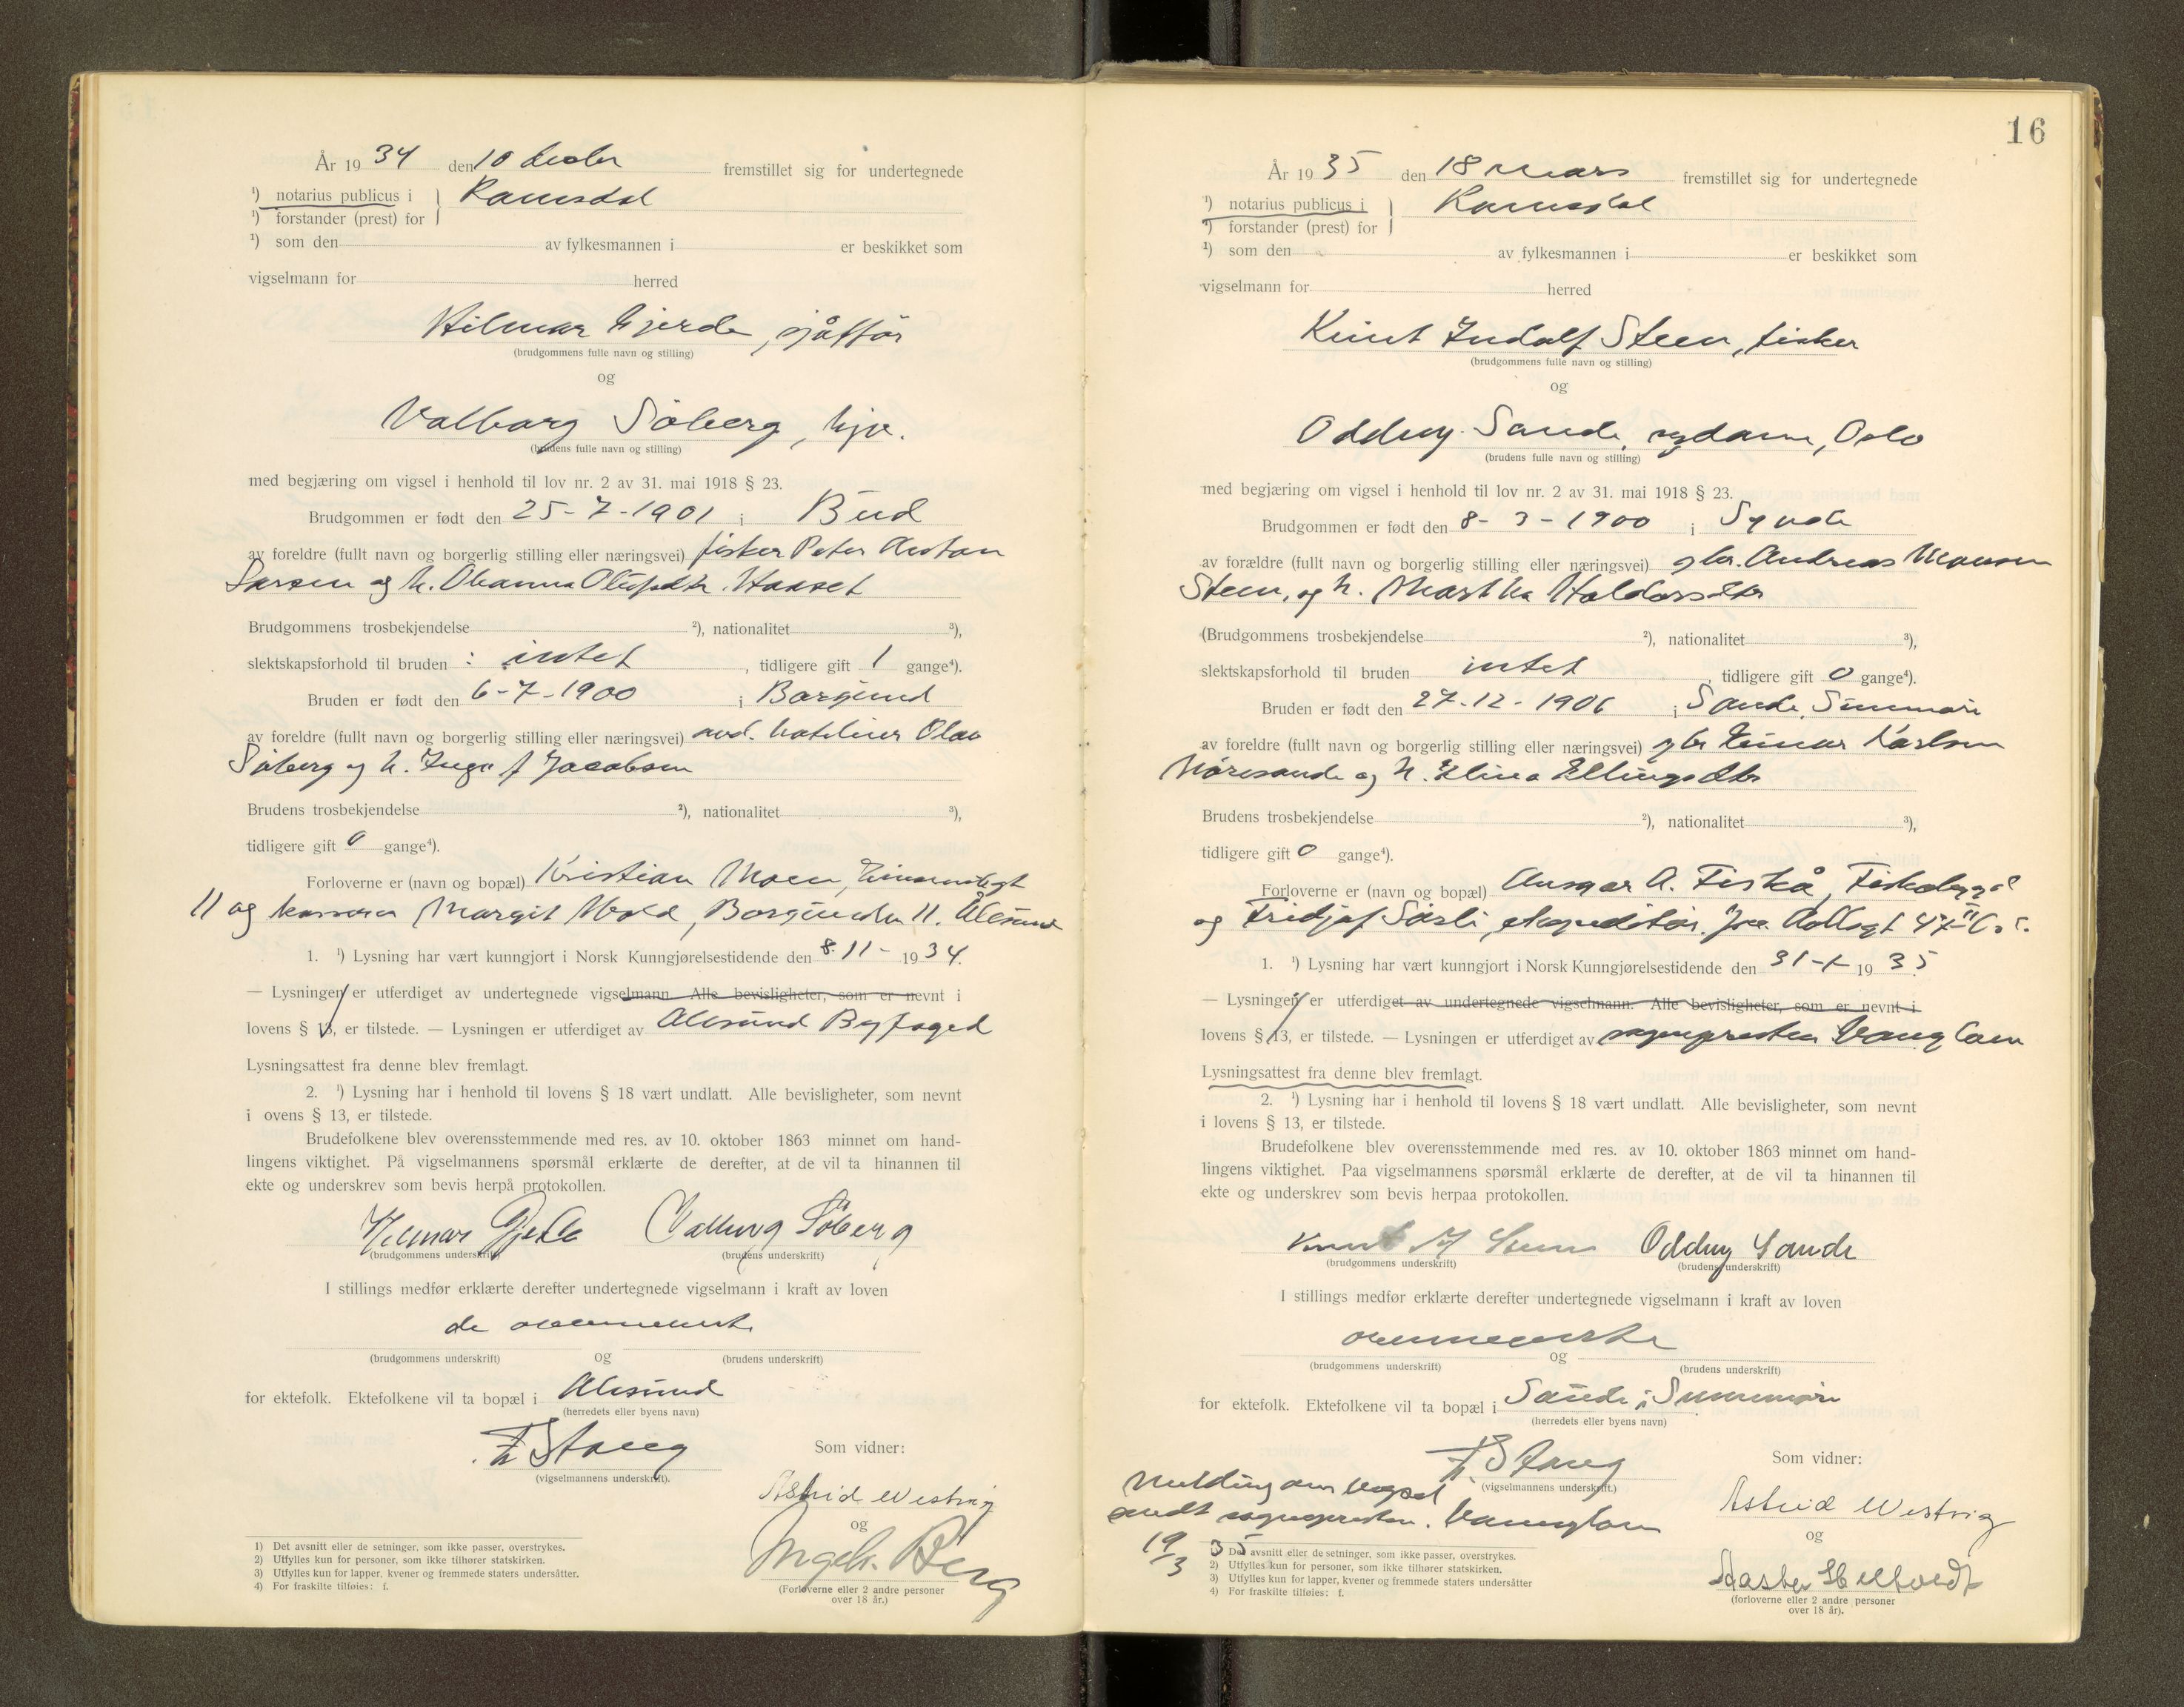 År 1934 den 10 desbr fremstillet sig for undertegnede
¹) notarius publicus i } Romsdal
¹) forstander (prest) for
¹) som den av fylkesmannen i er beskikket som
vigselmann for herred
Hilmar Gjerde, sjåffør
(brudgommens fulle navn og stilling)
og
Valborg Søberg, hjv.
(brudens fulle navn og stilling)
med begjæring om vigsel i henhold til lov nr. 2 av 31. mai 1918 § 23.
Brudgommen er født den 25-7-1901 i Bud
av foreldre (fullt navn og borgerlig stilling eller næringsvei) fisker Peter
Larsen og h. Olufsdtr. Harset
Brudgommens trosbekjendelse ²), nationalitet ³),
slektskapsforhold til bruden : intet, tidligere gift 1 gange⁴).
Bruden er født den 6-7-1900 i Borgund
av foreldre (fullt navn og borgerlig stilling eller næringsvei) Olav
Søberg og h. Inga f Jacobsen
Brudens trosbekjendelse ²), nationalitet ³),
tidligere gift 0 gange⁴).
Forloverne er (navn og bopæl) Kristian Moen,
11 og Margit Wold, 11. Ålesund
1. ¹) Lysning har vært kunngjort i Norsk Kunngjørelsestidende den 8.11- 1934.
— Lysningen er utferdiget av undertegnede vigselmann Alle bevisligheter, som er nevnt i
lovens § 13, er tilstede. — Lysningen er utferdiget av Ålesund Byfoged
Lysningsattest fra denne blev fremlagt.
2. ¹) Lysning har i henhold til lovens § 18 vært undlatt. Alle bevisligheter, som nevnt
i ovens § 13, er tilstede.
Brudefolkene blev overensstemmende med res. av 10. oktober 1863 minnet om hand-
lingens viktighet. På vigselmannens spørsmål erklærte de derefter, at de vil ta hinannen til
ekte og underskrev som bevis herpå protokollen.
Hilmar Gjerde Valborg Søberg
(brudgommens underskrift) (brudens underskrift)
I stillings medfør erklærte derefter undertegnede vigselmann i kraft av loven
de ovennevnte
(brudgommens underskrift) og (brudens underskrift)
for ektefolk. Ektefolkene vil ta bopæl i Ålesund
(herredets eller byens navn)
Stang
(vigselmannens underskrift).
Som vidner:
Astrid Westvig
og
Ingeb. Berg
(Forloverne eller 2 andre personer
over 18 år.)
1) Det avsnitt eller de setninger, som ikke passer, overstrykes.
2) Utfylles kun for personer, som ikke tilhører statskirken.
3) Utfylles kun for lapper, kvener og fremmede staters undersåtter.
4) For fraskilte tilføies: f.
16
År 1935 den 18 mars fremstillet sig for undertegnede
¹) notarius publicus i } Romsdal
¹) forstander (prest) for
¹) som den av fylkesmannen i er beskikket som
vigselmann for herred
Knut Indolf Steen, fisker
(brudgommens fulle navn og stilling)
og
Oddny Sande, sydame, Oslo
(brudens fulle navn og stilling)
med begjæring om vigsel i henhold til lov nr. 2 av 31. mai 1918 § 23.
Brudgommen er født den 8-3-1900 i
av forældre (fullt navn og borgerlig stilling eller næringsvei) gbr. Andreas Monsen
Steen, og h. Martha Haldorsdtr
(Brudgommens trosbekjendelse ²), nationalitet ³),
slektskapsforhold til bruden intet, tidligere gift 0 gange⁴).
Bruden er født den 27-12-1906 i Sande, Sunnmøre
av foreldre (fullt navn og borgerlig stilling eller næringsvei) gbr Einar Karlsen
Nøresande og h. Elina Ellingsdtr
Brudens trosbekjendelse ²), nationalitet ³),
tidligere gift 0 gange⁴).
Forloverne er (navn og bopæl) Ansgar A. Fiskå,
og Fridjof Sørli, ekspeditør. 47
1. ¹) Lysning har vært kunngjort i Norsk Kunngjørelsestidende den 31-1- 1935
— Lysningen er utferdiget av undertegnede vigselmann. Alle bevisligheter, som er nevnt i
lovens § 13, er tilstede. — Lysningen er utferdiget av sognepresten Vanylven
Lysningsattest fra denne blev fremlagt.
2. ¹) Lysning har i henhold til lovens § 18 vært undlatt. Alle bevisligheter, som nevnt
i lovens § 13, er tilstede.
Brudefolkene blev overensstemmende med res. av 10. oktober 1863 minnet om hand-
lingens viktighet. Paa vigselmannens spørsmål erklærte de derefter, at de vil ta hinannen til
ekte og underskrev som bevis herpaa protokollen.
Knut I Steen Oddny Sande
(brudgommens underskrift) (brudens underskrift)
I stillings medfør erklærte derefter undertegnede vigselmann i kraft av loven
ovennevnte
(brudgommens underskrift) og (brudens underskrift)
for ektefolk. Ektefolkene vil ta bopæl i Sande i Sunnmøre
(herredets eller byens navn)
Stang
(vigselmannens underskrift.)
Melding om vigsel
sendt sognepresten. Vanylven
19/3 35
Som vidner:
Astrid Westvig
og
(forloverne eller 2 andre personer
over 18 år).
1) Det avsnitt eller de setninger, som ikke passer, overstrykes.
2) Utfylles kun for personer, som ikke tilhører statskirken.
3) Utfylles kun for lapper, kvener og fremmede staters undersåtter
4) For fraskilte tilføies: f.